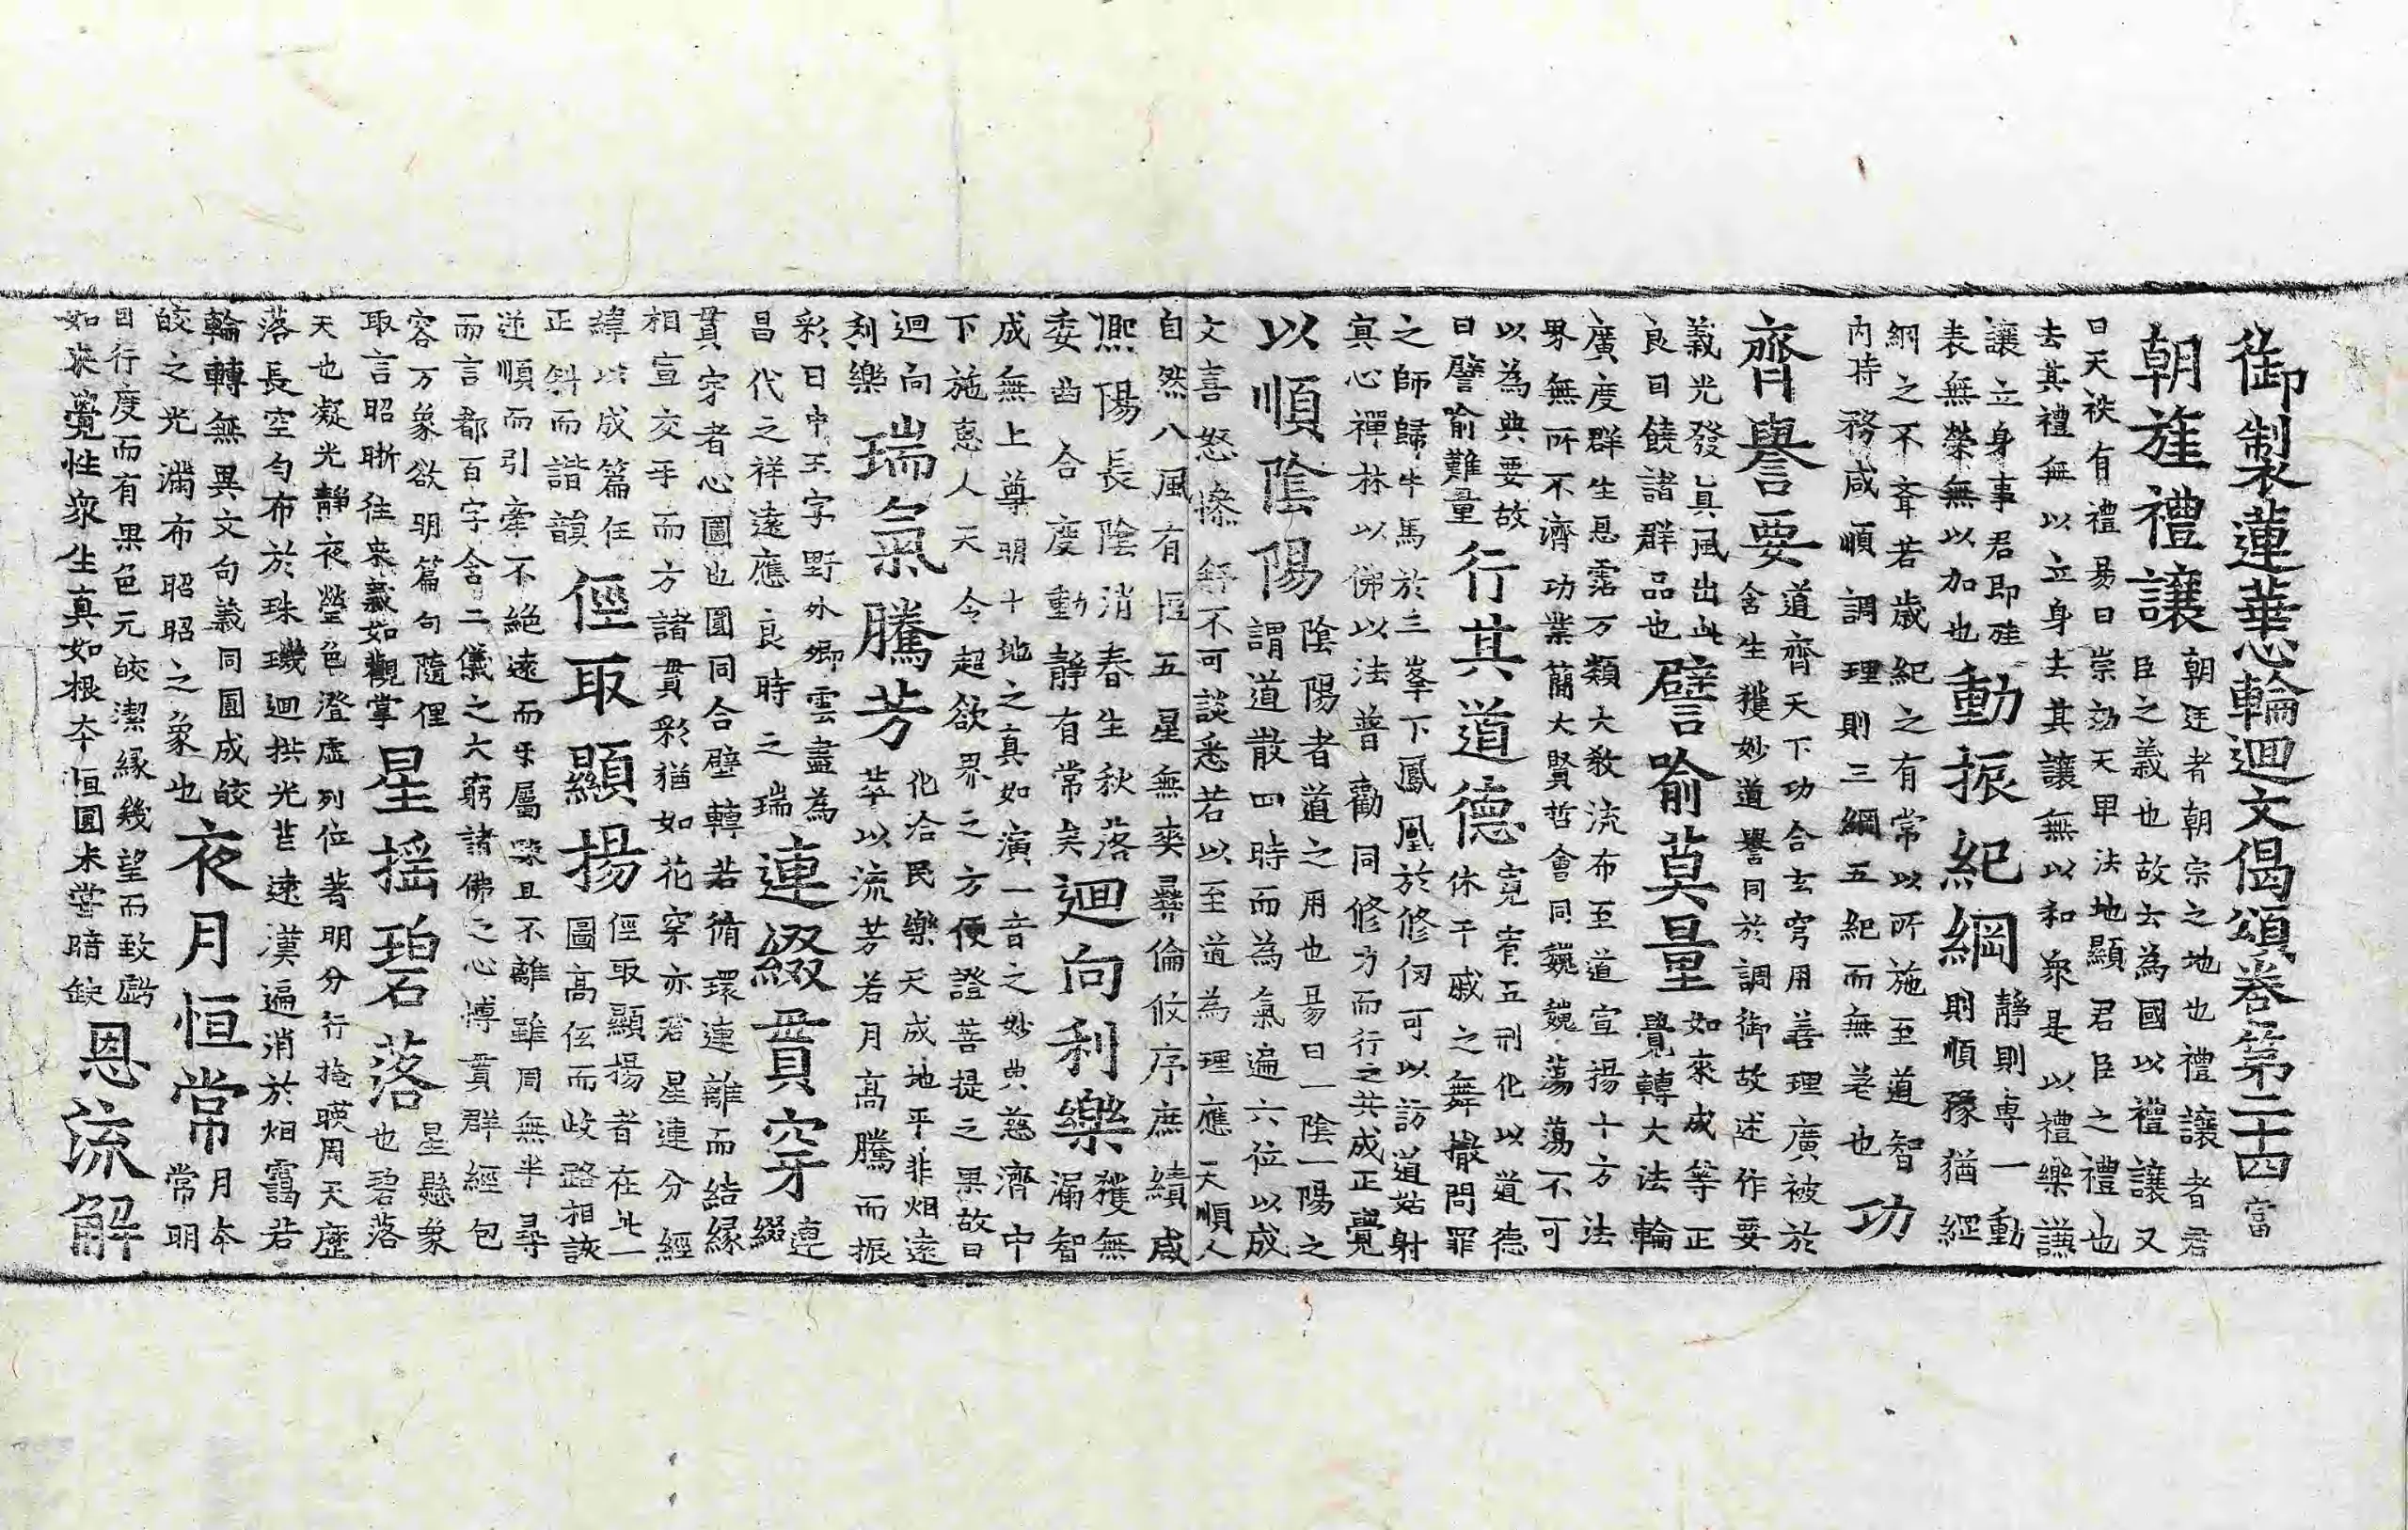 御製蓮華心輪迴文偈頌卷第二十四 當
朝旌禮讓
朝廷者朝宗之地也禮讓者君
臣之義也故去為國以禮讓又
曰天袟有禮易曰崇効天卑法地顯君臣之禮也
去其禮無以立身去其讓無以和衆是以禮樂謙
讓立身事君即旌
表無榮無以加也
動振紀綱
靜則專一動
則順豫猶綱
綱之不紊若歲紀之有常以所施至道智
内時務咸順調理則三綱五紀而無差也
功
齊譽要
道齊天下功合玄穹用善理廣被於
含生獲妙道譽同於調御故述作要
義光發真風出此
良因饒諸群品也
譬喻莫量
如來成等正
覺轉大法輪
廣度群生恩霑万類大教流布至道宣揚十方法
界無所不濟功業簡大賢哲會同巍巍蕩蕩不可
以為典要故
曰譬喻難量
行其道德
寬宥五刑化以道德
休干戚之舞撤問罪
之師歸牛馬於三峯下鳳凰於修仞可以訪道姑射
冥心禪林以佛以法普勸同修方而行之共成正覺
以順陰陽
陰陽者道之用也易曰一陰一陽之
謂道散四時而為氣遍六位以成
文喜怒慘舒不可談悉若以至道為理應天順人
自然八風有臣五星無奕彛倫攸序庶績咸
熈陽長陰消春生秋落
委曲合度動靜有常矣
迴向利樂
獲無
漏智
成無上尊明十地之真如演一音之妙典慈濟中
下施惠人天令超欲界之方便證菩提之果故曰
迴向
利樂
瑞氣騰芳
化洽民樂天成地平非烟遠
萃以流芳若月高騰而振
彩日中王字野外卿雲盡為
昌代之祥遠應良時之瑞
連綴貫穿
連
綴
貫穿者心圓也圓同合璧轉若循環連離而結緣
相宣交乎而方諸貫彩猶如花穿亦若星連分經
緯以成篇任
正斜而諧韻
俓取顯揚
俓取顯揚者在此一
圖高伭而歧路相該
逆順而引牽不絕遠而乎屬聚且不離雖周無半尋
而言都百字含二儀之大窮諸佛之心博貫群經包
容万象欲明篇句隨俚
取言昭晣往來義如觀掌
星摇碧落
星懸象
也碧落
天也凝光靜夜瑩色澄虛列位著明分行掩暎周天歷
落長空勻布於珠璣迴拱光芒遠漢遍消於烟靄若
輪轉無異文句義同圓成皎
皎之光滿布昭昭之象也
夜月恒常
月本
常明
因行度而有果色元皎潔緣幾望而致虧
如來覺性衆生真如根本恒圓未嘗暗缺
恩流解